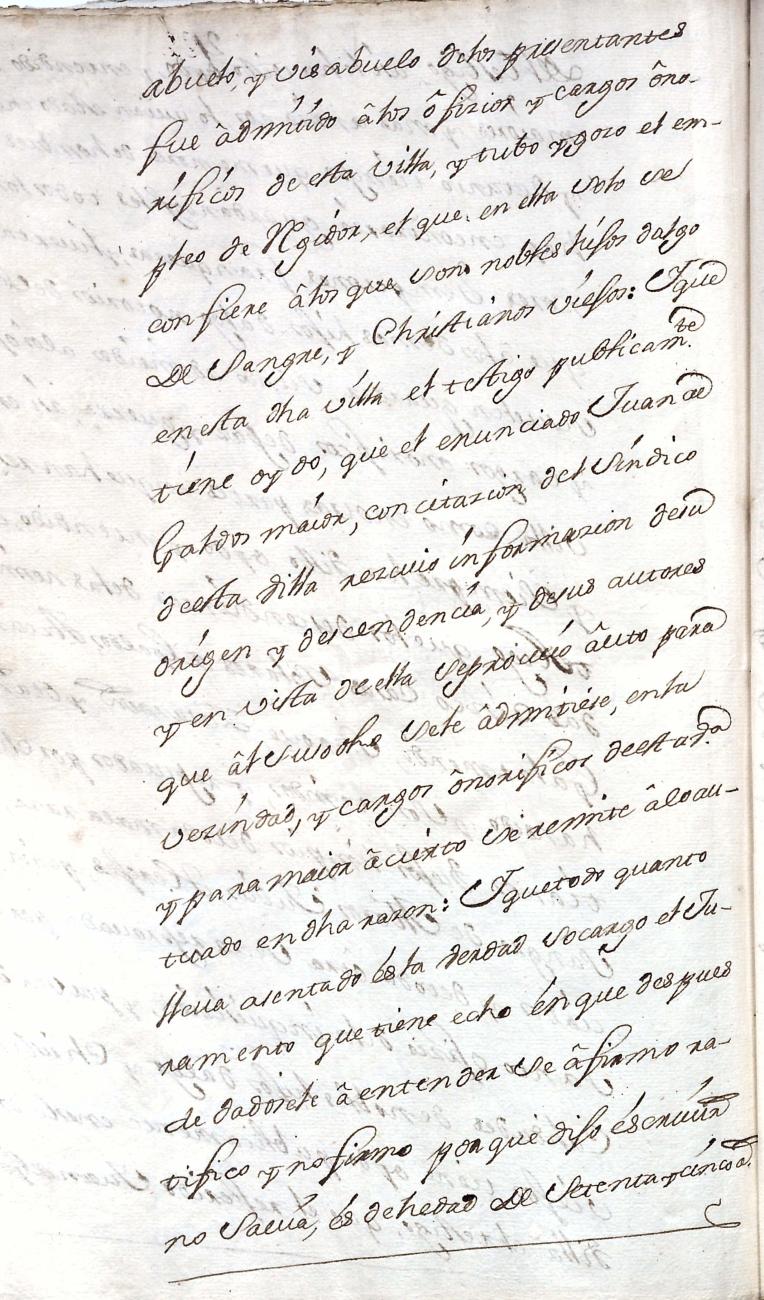 abuelo, y visabuelo delos presentantes
fue âdmitido âlos ôfizios y cargos ôno-
rificos de esta villa, y tubo y gozo el em-
pleo de Rgidor, el que en ella solo se
confiere âlos que son nobles hijos dalgo
De Sangre, y Christianos viejos: Y que
en esta dha villa el testigo publicam.te
tiene oydo, que el enunciado Juan de
Galdos maior, con citazion del Sindico
de esta villa rezivio informazion de su
origen y descendencia, y de sus autores
y en vista de ella se proveió âuto para
que âl suso dho se le âdmitiese, en la
vezindad, y cargos ônorificos de esta d.a
y para maior âcierto se remite â lo au-
tuado en dha razon: Y que todo quanto
lleva asentado és la verdad so cargo el Ju-
ramento que tiene echo én que despues
de dadosele â entender se âfirmo ra-
tifico y no firmo por que dijo éscrivir
no Savia, és de hedad De Setenta y cinco a.s